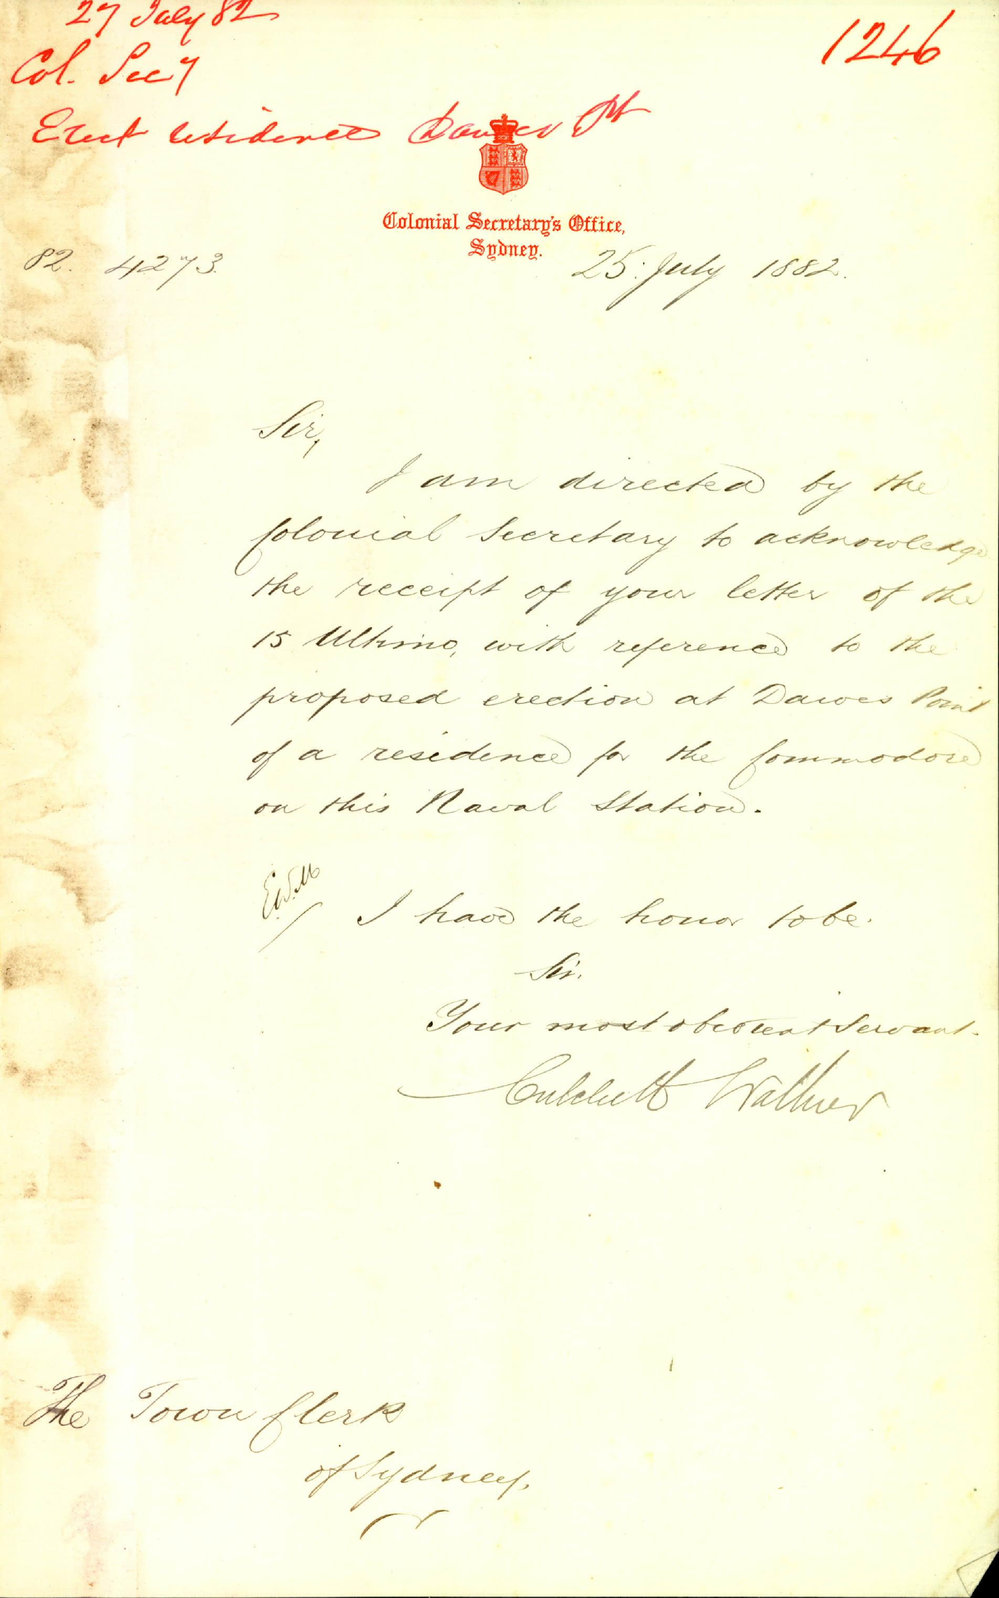 27 July 82
Col. Secy
1246
Erect residence Dawes Pt
Colonial Secretary's Office,
Sydney.
82. 4273.
25 July 1882.
Sir,
I am directed by the
Colonial Secretary to acknowledge
the receipt of your letter of the
15 Ultimo, with reference to the
proposed erection at Dawes Point
of a residence for the Commodore
on this Naval Station.
I have the honor to be.
Sir.
Your most obedient Servant.
Critchett Walker
The Town Clerk
of Sydney.